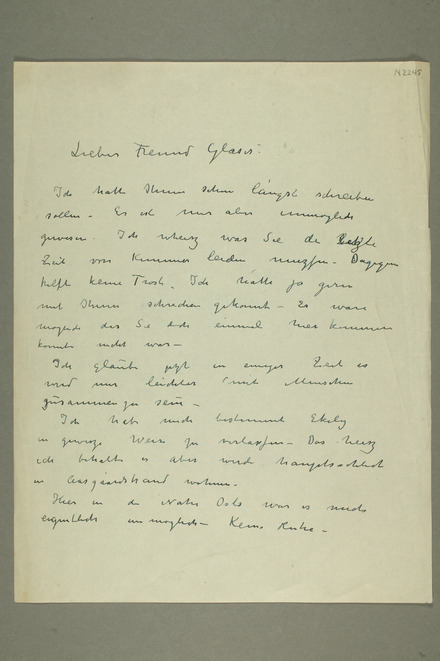 N 2245
Lieber Freund Glaser.
Ich hatte Ihnen schon längst schreiben
sollen – Es ist mir aber unmoglich
gewesen. Ich weisz was Sie die letzte
Zeit von Kummer leiden – Dagegen
hilft keine Trost. Ich hätte so gern
mit Ihnen sprechen gekonnt – Es ware
moglich das Sie doch einmal hier kommen
konnte nicht war –
Ich glaube jetzt in einiger Zeit es
wird mir leichter mit Menschen
zusammen zu sein –
Ich habe mich bestimmt Ekely
in gewisze Weise zu verlaszen – Das heisz
ich behalte es aber werde hauptsachlich
in Aasgaardstrand wohnen –
Hier in der Nähe Oslo war es mich
eigentlich unmoglich – Keine Ruhe –